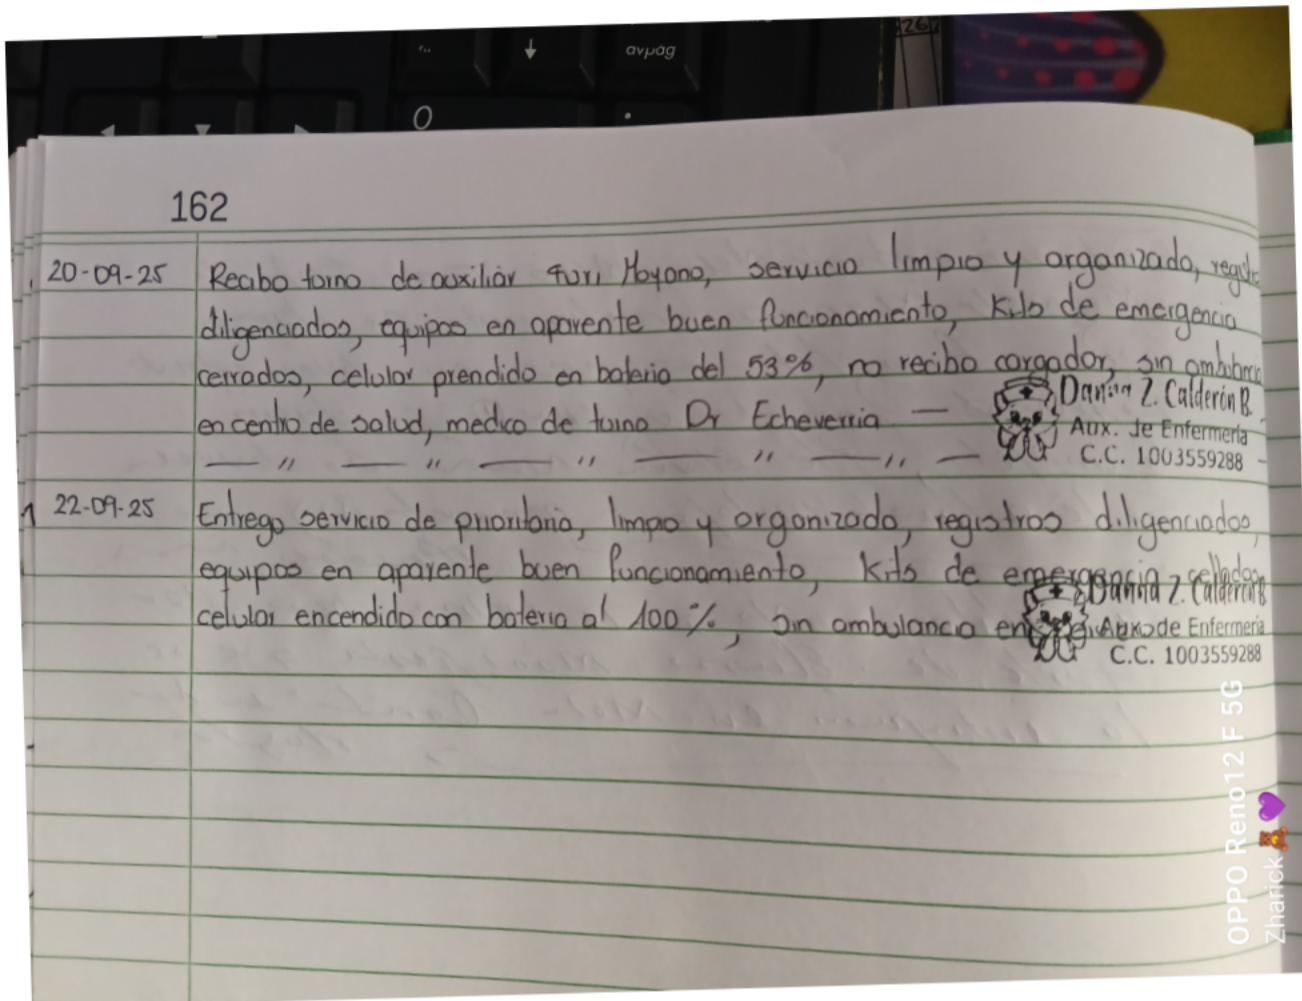 avpag
0
26
162
20-09-25 Recibo turno de auxiliar Yuri Moyano, servicio limpio y organizado,
diligenciados, equipos en aparente buen funcionamiento, Kits de emergencia
cerrados, celular prendido en bateria del 53%, no recibo cargador, sin ambulancia
en centro de salud, medico de turno Dr Echeverria —
— " — " — " — " — " —
Danna Z. Calderón B.
Aux. de Enfermería
C.C. 1003559288
22-09-25 Entrego servicio de prioritaria, limpio y organizado, registros diligenciados,
equipos en aparente buen funcionamiento, Kits de emergencia sellados
celular encendido con bateria al 100%, sin ambulancia en
Danna Z. Calderón B.
Aux. de Enfermería
C.C. 1003559288
OPPO Reno12 F 5G
Zharick 💜🧸